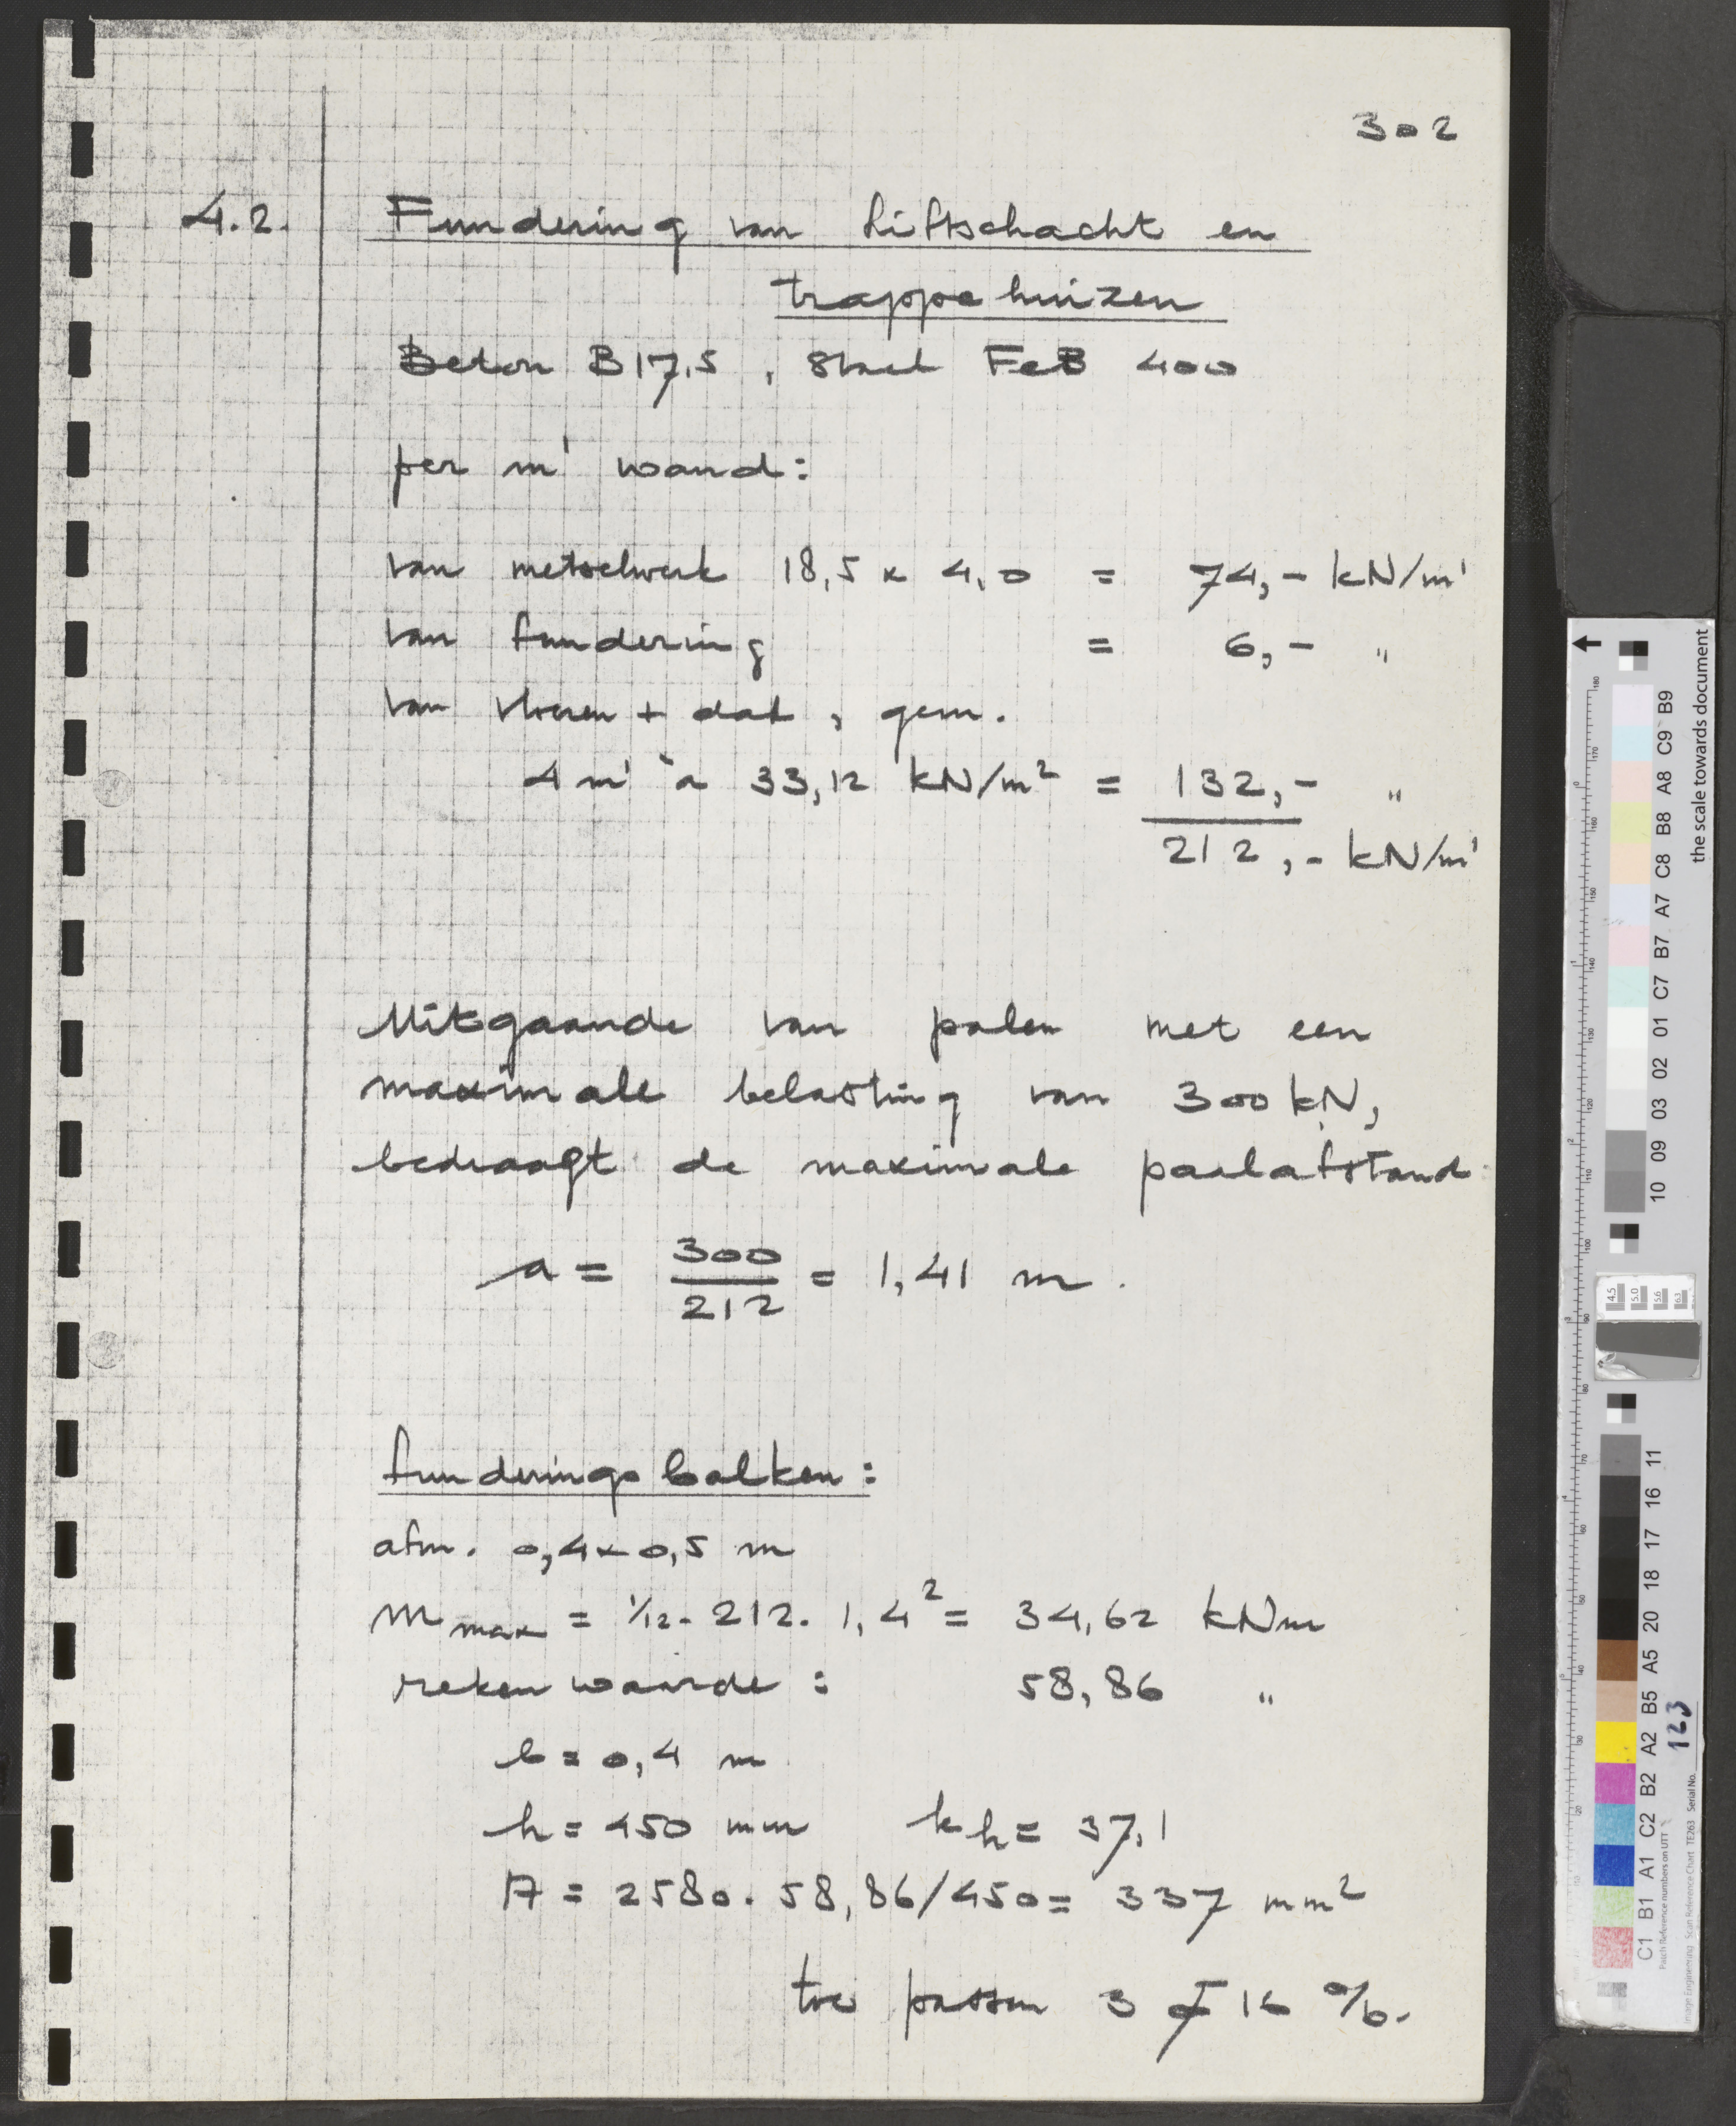 302
4.2. Fundering van liftschacht en
trappehuizen
Beton B 17,5 , Staal FeB 400
per m' wand:
van metselwerk 18,5 x 4,0 = 74,- kN/m'
van fundering = 6,- "
van vloeren + dak , gem.
4 m' à 33,12 kN/m² = 132,- "
212,- kN/m'
Uitgaande van palen met een
maximale belasting van 300 kN,
bedraagt de maximale paalafstand:
a = 300/212 = 1,41 m.
funderingsbalken:
afm. 0,4 x 0,5 m
M max = 1/12 . 212 . 1,4² = 34,62 kNm
rekenwaarde : 58,86 "
b = 0,4 m
h = 450 mm kh = 37,1
A = 2580 . 58,86/450 = 337 mm²
toe passen 3 ø 16 o/b.
the scale towards document
C1 B1 A1 C2 B2 A2 B5 A5 20 18 17 16 11
10 09 03 02 01 C7 B7 A7 C8 B8 A8 C9 B9
4.5 5.0 5.6 6.3
123
Patch Reference numbers on UTT
Image Engineering Scan Reference Chart TE263 Serial No.